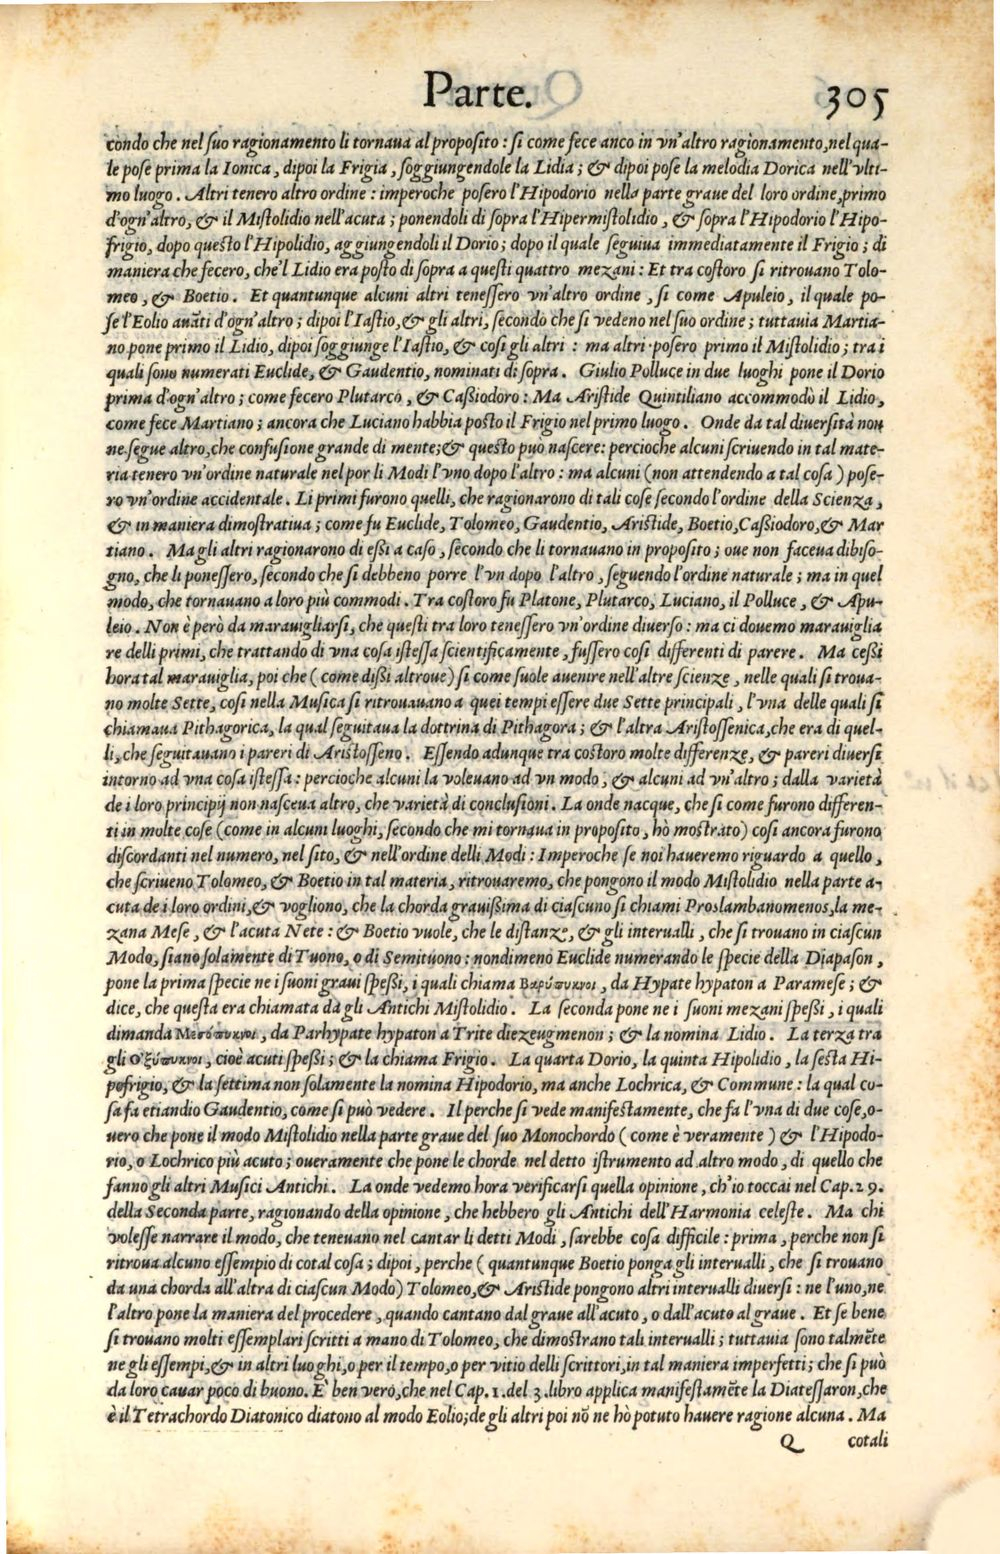 Parte. 305
condo che nel ſuo ragionamento li tornaua al propoſito : ſi come fece anco in vn'altro ragionamento, nel qua-
le poſe prima la Ionica, dipoi la Frigia, ſoggiungendole la Lidia; & dipoi poſe la melodia Dorica nell'vlti-
mo luogo. Altri tenero altro ordine : imperoche poſero l'Hipodorio nella parte graue del loro ordine, primo
d'ogn'altro, & il Miſtolidio nell'acuta; ponendoli di ſopra l'Hipermiſtolidio, & ſopra l'Hipodorio l'Hipo-
frigio, dopo queſto l'Hipolidio, aggiungendoli il Dorio; dopo il quale ſeguiua immediatamente il Frigio; di
maniera che fecero, che'l Lidio era poſto di ſopra a queſti quattro mezani : Et tra coſtoro ſi ritrouano Tolo-
meo, & Boetio. Et quantunque alcuni altri teneſſero vn'altro ordine, ſi come Apuleio, il quale po-
ſe l'Eolio auāti d'ogn'altro; dipoi l'Iaſtio, & gli altri, ſecondo che ſi vedeno nel ſuo ordine; tuttauia Martia-
no pone primo il Lidio, dipoi ſoggiunge l'Iaſtio, & coſi gli altri : ma altri poſero primo il Miſtolidio; tra i
quali ſono numerati Euclide, & Gaudentio, nominati di ſopra. Giulio Polluce in due luoghi pone il Dorio
prima d'ogn'altro; come fecero Plutarco, & Caßiodoro : Ma Ariſtide Quintiliano accommodò il Lidio,
come fece Martiano; ancora che Luciano habbia poſto il Frigio nel primo luogo. Onde da tal diuerſità non
ne ſegue altro, che confuſione grande di mente; & queſto può naſcere : percioche alcuni ſcriuendo in tal mate-
ria tenero vn'ordine naturale nel por li Modi l'vno dopo l'altro : ma alcuni (non attendendo a tal coſa) poſe-
ro vn'ordine accidentale. Li primi furono quelli, che ragionarono di tali coſe ſecondo l'ordine della Scienza,
& in maniera dimoſtratiua; come fu Euclide, Tolomeo, Gaudentio, Ariſtide, Boetio, Caßiodoro, & Mar
tiano. Ma gli altri ragionarono di eßi a caſo, ſecondo che li tornauano in propoſito; oue non faceua dibiſo-
gno, che li poneſſero, ſecondo che ſi debbeno porre l'vn dopo l'altro, ſeguendo l'ordine naturale; ma in quel
modo, che tornauano a loro più commodi. Tra coſtoro fu Platone, Plutarco, Luciano, il Polluce, & Apu-
leio. Non è però da marauigliarſi, che queſti tra loro teneſſero vn'ordine diuerſo : ma ci douemo marauiglia
re delli primi, che trattando di vna coſa iſteſſa ſcientificamente, fuſſero coſi differenti di parere. Ma ceßi
hora tal marauiglia, poi che (come dißi altroue) ſi come ſuole auenire nell'altre ſcienze, nelle quali ſi troua-
no molte Sette, coſi nella Muſica ſi ritrouauano a quei tempi eſſere due Sette principali, l'vna delle quali ſi
chiamaua Pithagorica, la qual ſeguitaua la dottrina di Pithagora; & l'altra Ariſtoſſenica, che era di quel-
li, che ſeguitauano i pareri di Ariſtoſſeno. Eſſendo adunque tra coſtoro molte differenze, & pareri diuerſi
intorno ad vna coſa iſteſſa : percioche alcuni la voleuano ad vn modo, & alcuni ad vn'altro; dalla varietà
de i loro principij non naſceua altro, che varietà di concluſioni. La onde nacque, che ſi come furono differen-
ti in molte coſe (come in alcuni luoghi, ſecondo che mi tornaua in propoſito, hò moſtrato) coſi ancora furono
diſcordanti nel numero, nel ſito, & nell'ordine delli Modi : Imperoche ſe noi haueremo riguardo a quello,
che ſcriueno Tolomeo, & Boetio in tal materia, ritrouaremo, che pongono il modo Miſtolidio nella parte a-
cuta de i loro ordini, & vogliono, che la chorda grauißima di ciaſcuno ſi chiami Proslambanomenos, la me-
zana Meſe, & l'acuta Nete : & Boetio vuole, che le diſtanze, & gli interualli, che ſi trouano in ciaſcun
Modo, ſiano ſolamente di Tuono, o di Semituono : nondimeno Euclide numerando le ſpecie della Diapaſon,
pone la prima ſpecie ne i ſuoni graui ſpeßi, i quali chiama Βαρύπυκνοι, da Hypate hypaton a Parameſe; &
dice, che queſta era chiamata da gli Antichi Miſtolidio. La ſeconda pone ne i ſuoni mezani ſpeßi, i quali
dimanda Μεσόπυκνοι, da Parhypate hypaton a Trite diezeugmenon; & la nomina Lidio. La terza tra
gli Ο'ξύπυκνοι, cioè acuti ſpeßi; & la chiama Frigio. La quarta Dorio, la quinta Hipolidio, la ſeſta Hi-
pofrigio, & la ſettima non ſolamente la nomina Hipodorio, ma anche Lochrica, & Commune : la qual co-
ſa fa etiandio Gaudentio, come ſi può vedere. Il perche ſi vede manifeſtamente, che fa l'vna di due coſe, o-
uero che pone il modo Miſtolidio nella parte graue del ſuo Monochordo (come è veramente) & l'Hipodo-
rio, o Lochrico più acuto; oueramente che pone le chorde nel detto iſtrumento ad altro modo, di quello che
fanno gli altri Muſici Antichi. La onde vedemo hora verificarſi quella opinione, ch'io toccai nel Cap. 29.
della Seconda parte, ragionando della opinione, che hebbero gli Antichi dell'Harmonia celeſte. Ma chi
voleſſe narrare il modo, che teneuano nel cantar li detti Modi, ſarebbe coſa difficile : prima, perche non ſi
ritroua alcuno eſſempio di cotal coſa; dipoi, perche (quantunque Boetio ponga gli interualli, che ſi trouano
da una chorda all'altra di ciaſcun Modo) Tolomeo, & Ariſtide pongono altri interualli diuerſi : ne l'uno, ne
l'altro pone la maniera del procedere, quando cantano dal graue all'acuto, o dall'acuto al graue. Et ſe bene
ſi trouano molti eſſemplari ſcritti a mano di Tolomeo, che dimoſtrano tali interualli; tuttauia ſono talmēte
ne gli eſſempi, & in altri luoghi, o per il tempo, o per vitio delli ſcrittori, in tal maniera imperfetti; che ſi può
da loro cauar poco di buono. E' ben verò, che nel Cap. 1. del 3. libro applica manifeſtamēte la Diateſſaron, che
è il Tetrachordo Diatonico diatono al modo Eolio; de gli altri poi nō ne hò potuto hauere ragione alcuna. Ma
Q cotali